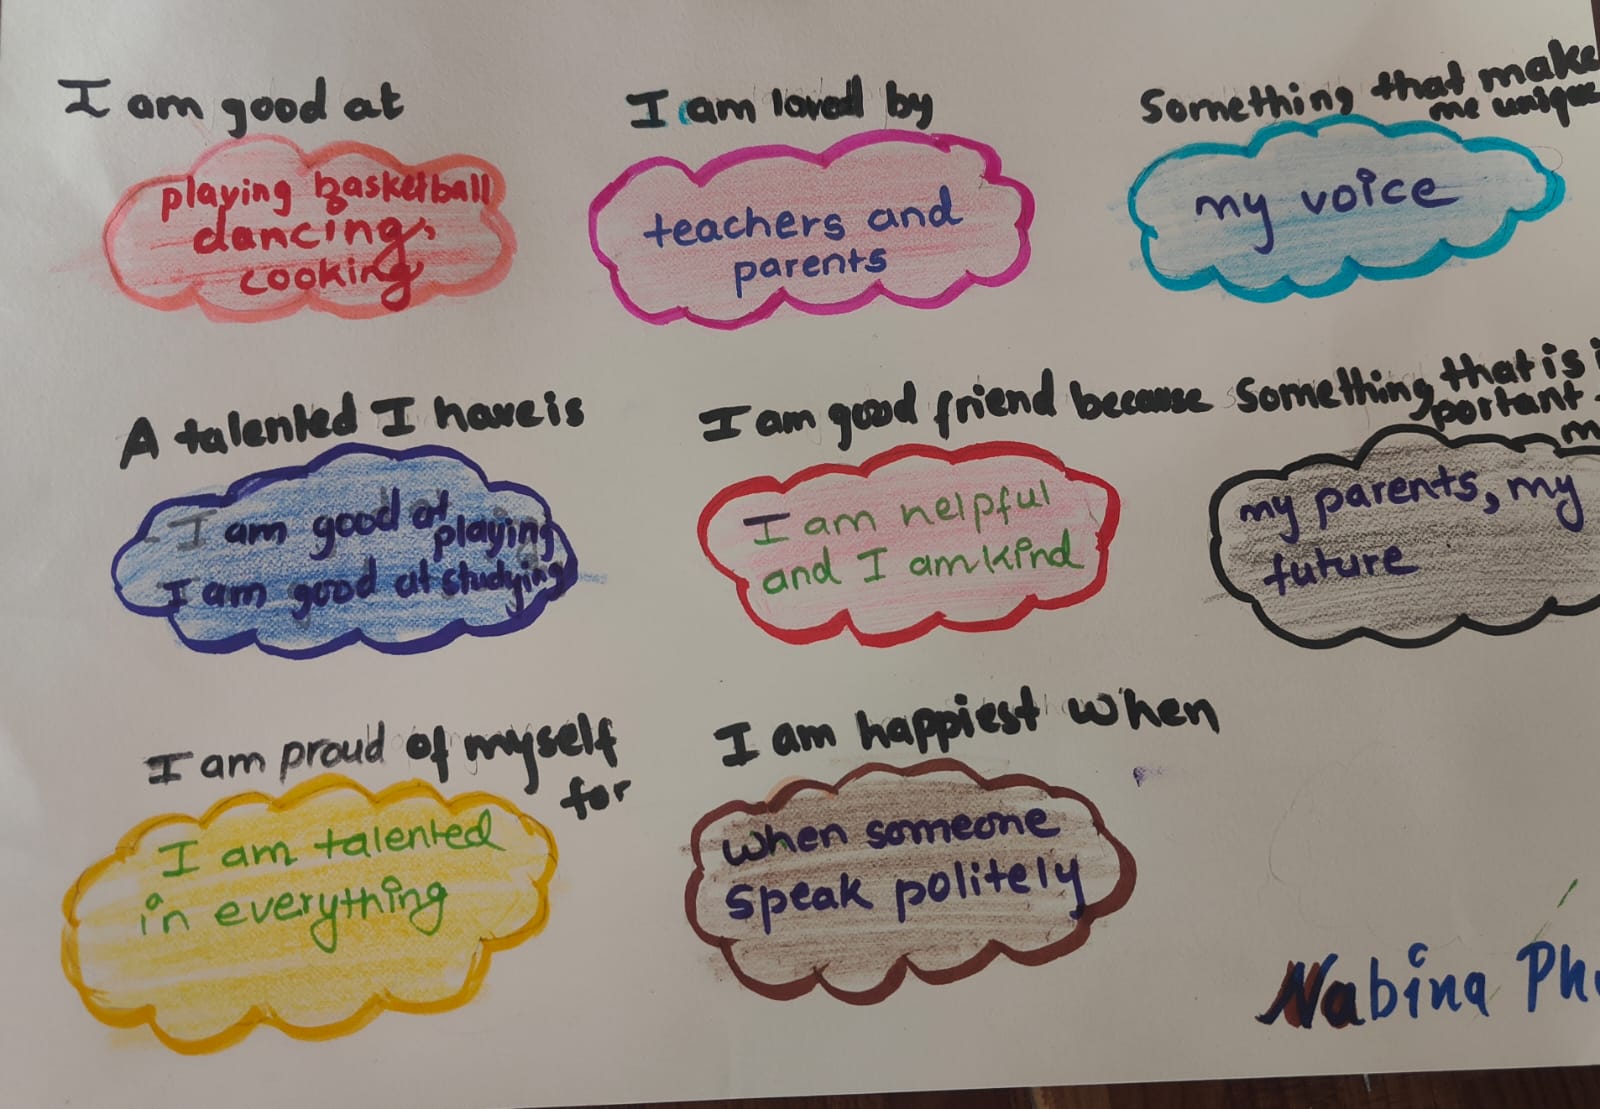 I am good at
playing basketball
dancing,
cooking
I am loved by
teachers and
parents
Something that make
me unique
my voice
A talented I have is
I am good at playing
I am good at studying
I am good friend because
I am helpful
and I am kind
Something that is i
portant
my parents, my
future
I am proud of myself
for
I am talented
in everything
I am happiest when
when someone
speak politely
Nabina